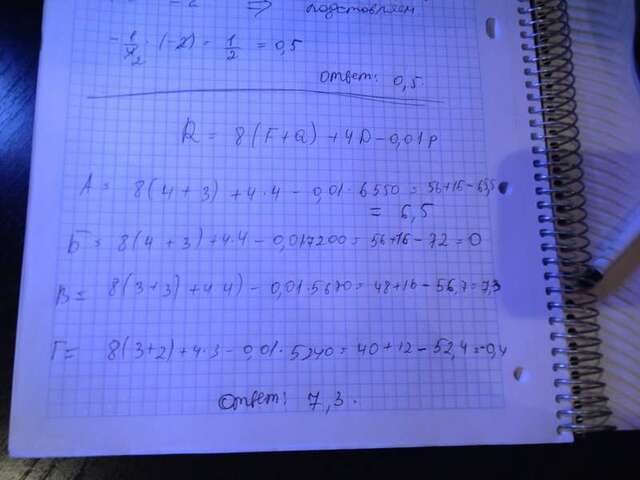 -2 ⇒ подставляем
-1/4₂ · (-2) = 1/2 = 0,5
ответ: 0,5
R = 8(F+Q) + 4D - 0,01P
А = 8(4+3) + 4·4 - 0,01·6550 = 56+16-65,5
= 6,5
Б = 8(4+3)+4·4 - 0,017200 = 56+16-72=0
В = 8(3+3)+4·4) - 0,01·5670 = 48+16-56,7=7,3
Г = 8(3+2)+4·3-0,01·5240=40+12-52,4=-0,4
Ответ: 7,3.